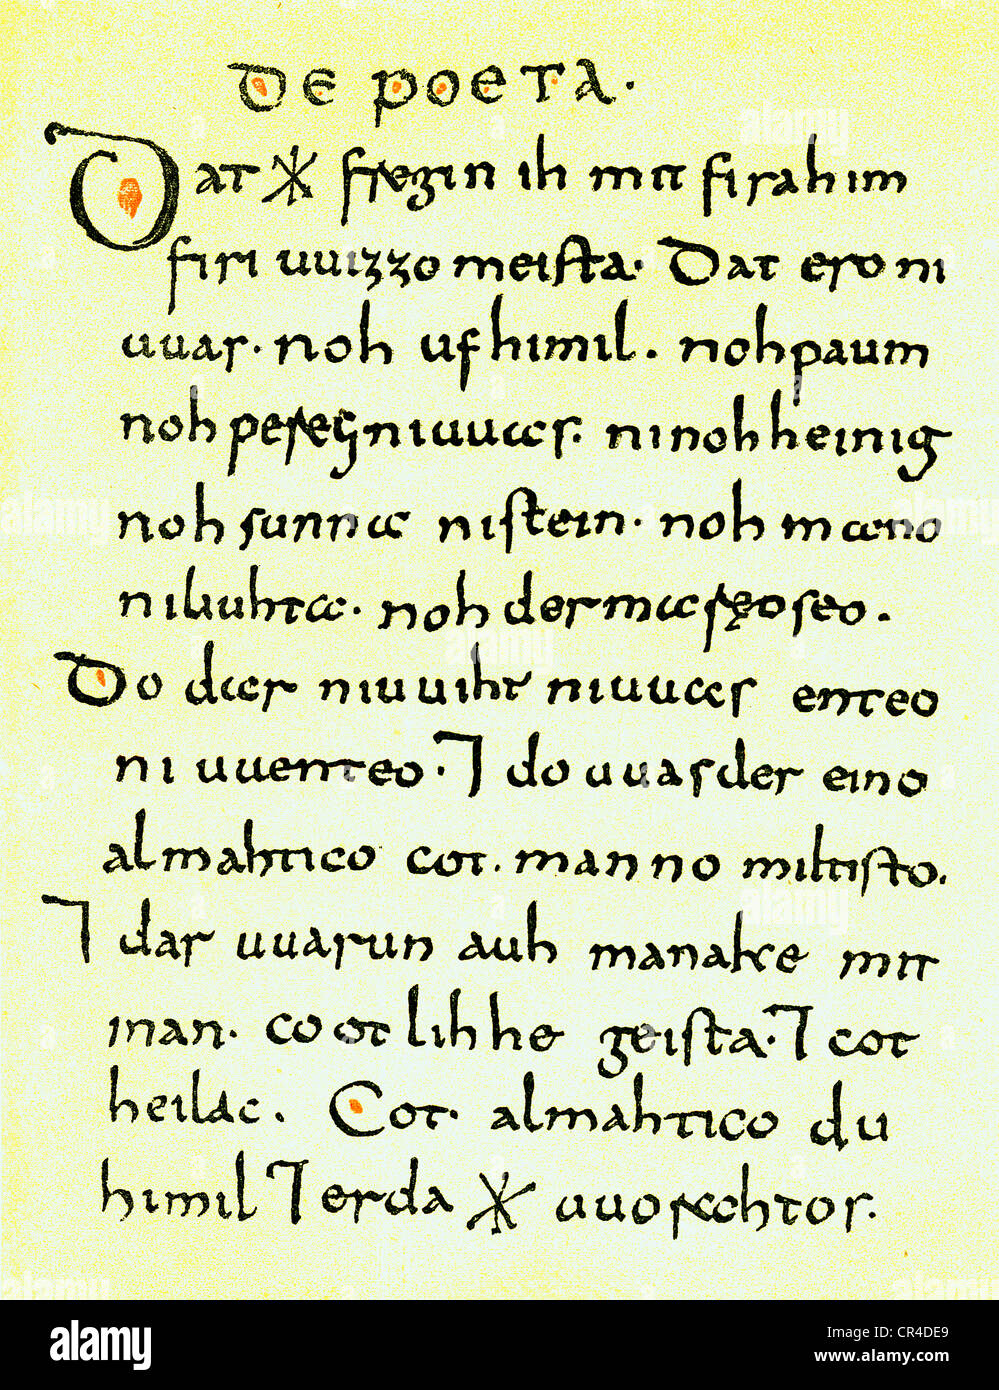 DE POETA.
Dat ᚷ fregin ih mit firahim
firi uuizzo meista. Dat ero ni
uuas. noh ufhimil. noh paum
noh pereg ni uuas. ni nohheinig
noh sunna ni stein. noh mano
ni liuhta. noh der maręo seo.
Do dar niuuiht ni uuas enteo
ni uuenteo. ⁊ do uuas der eino
almahtico cot. manno miltisto.
⁊ dar uuarun auh manake mit
inan. cootlihhe geista. ⁊ cot
heilac. Cot almahtico du
himil ⁊ erda ᚷ uuorachtos.
alamy
Image ID: CR4DE9
www.alamy.com